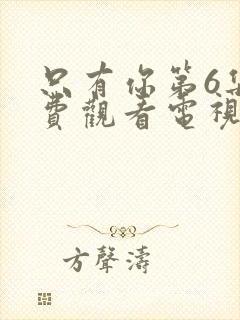 只有你第6集
費觀看電視
方聲濤